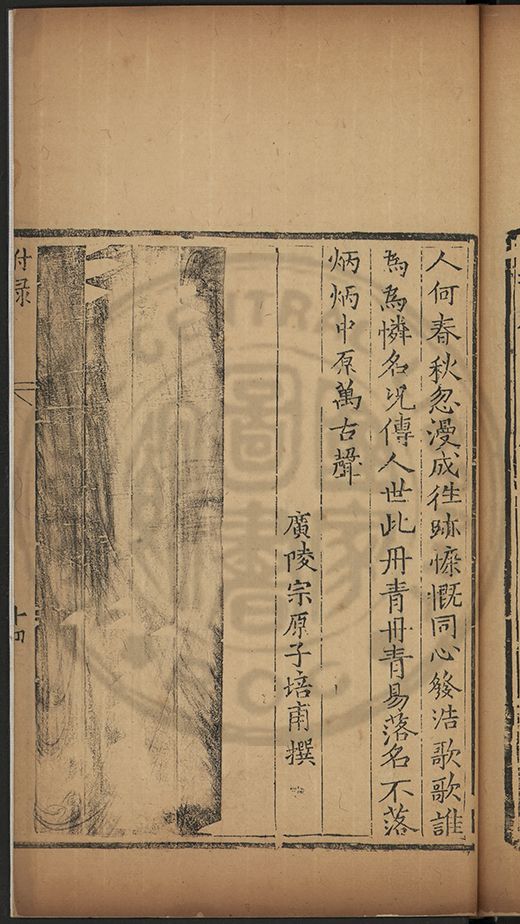 人何春秋忽漫成徃跡慷慨同心發浩歌歌誰
為為憐名児傳人世此丹青丹青易落名不落
炳炳中原萬古聲
廣陵宗原子培甫撰
付录
十四